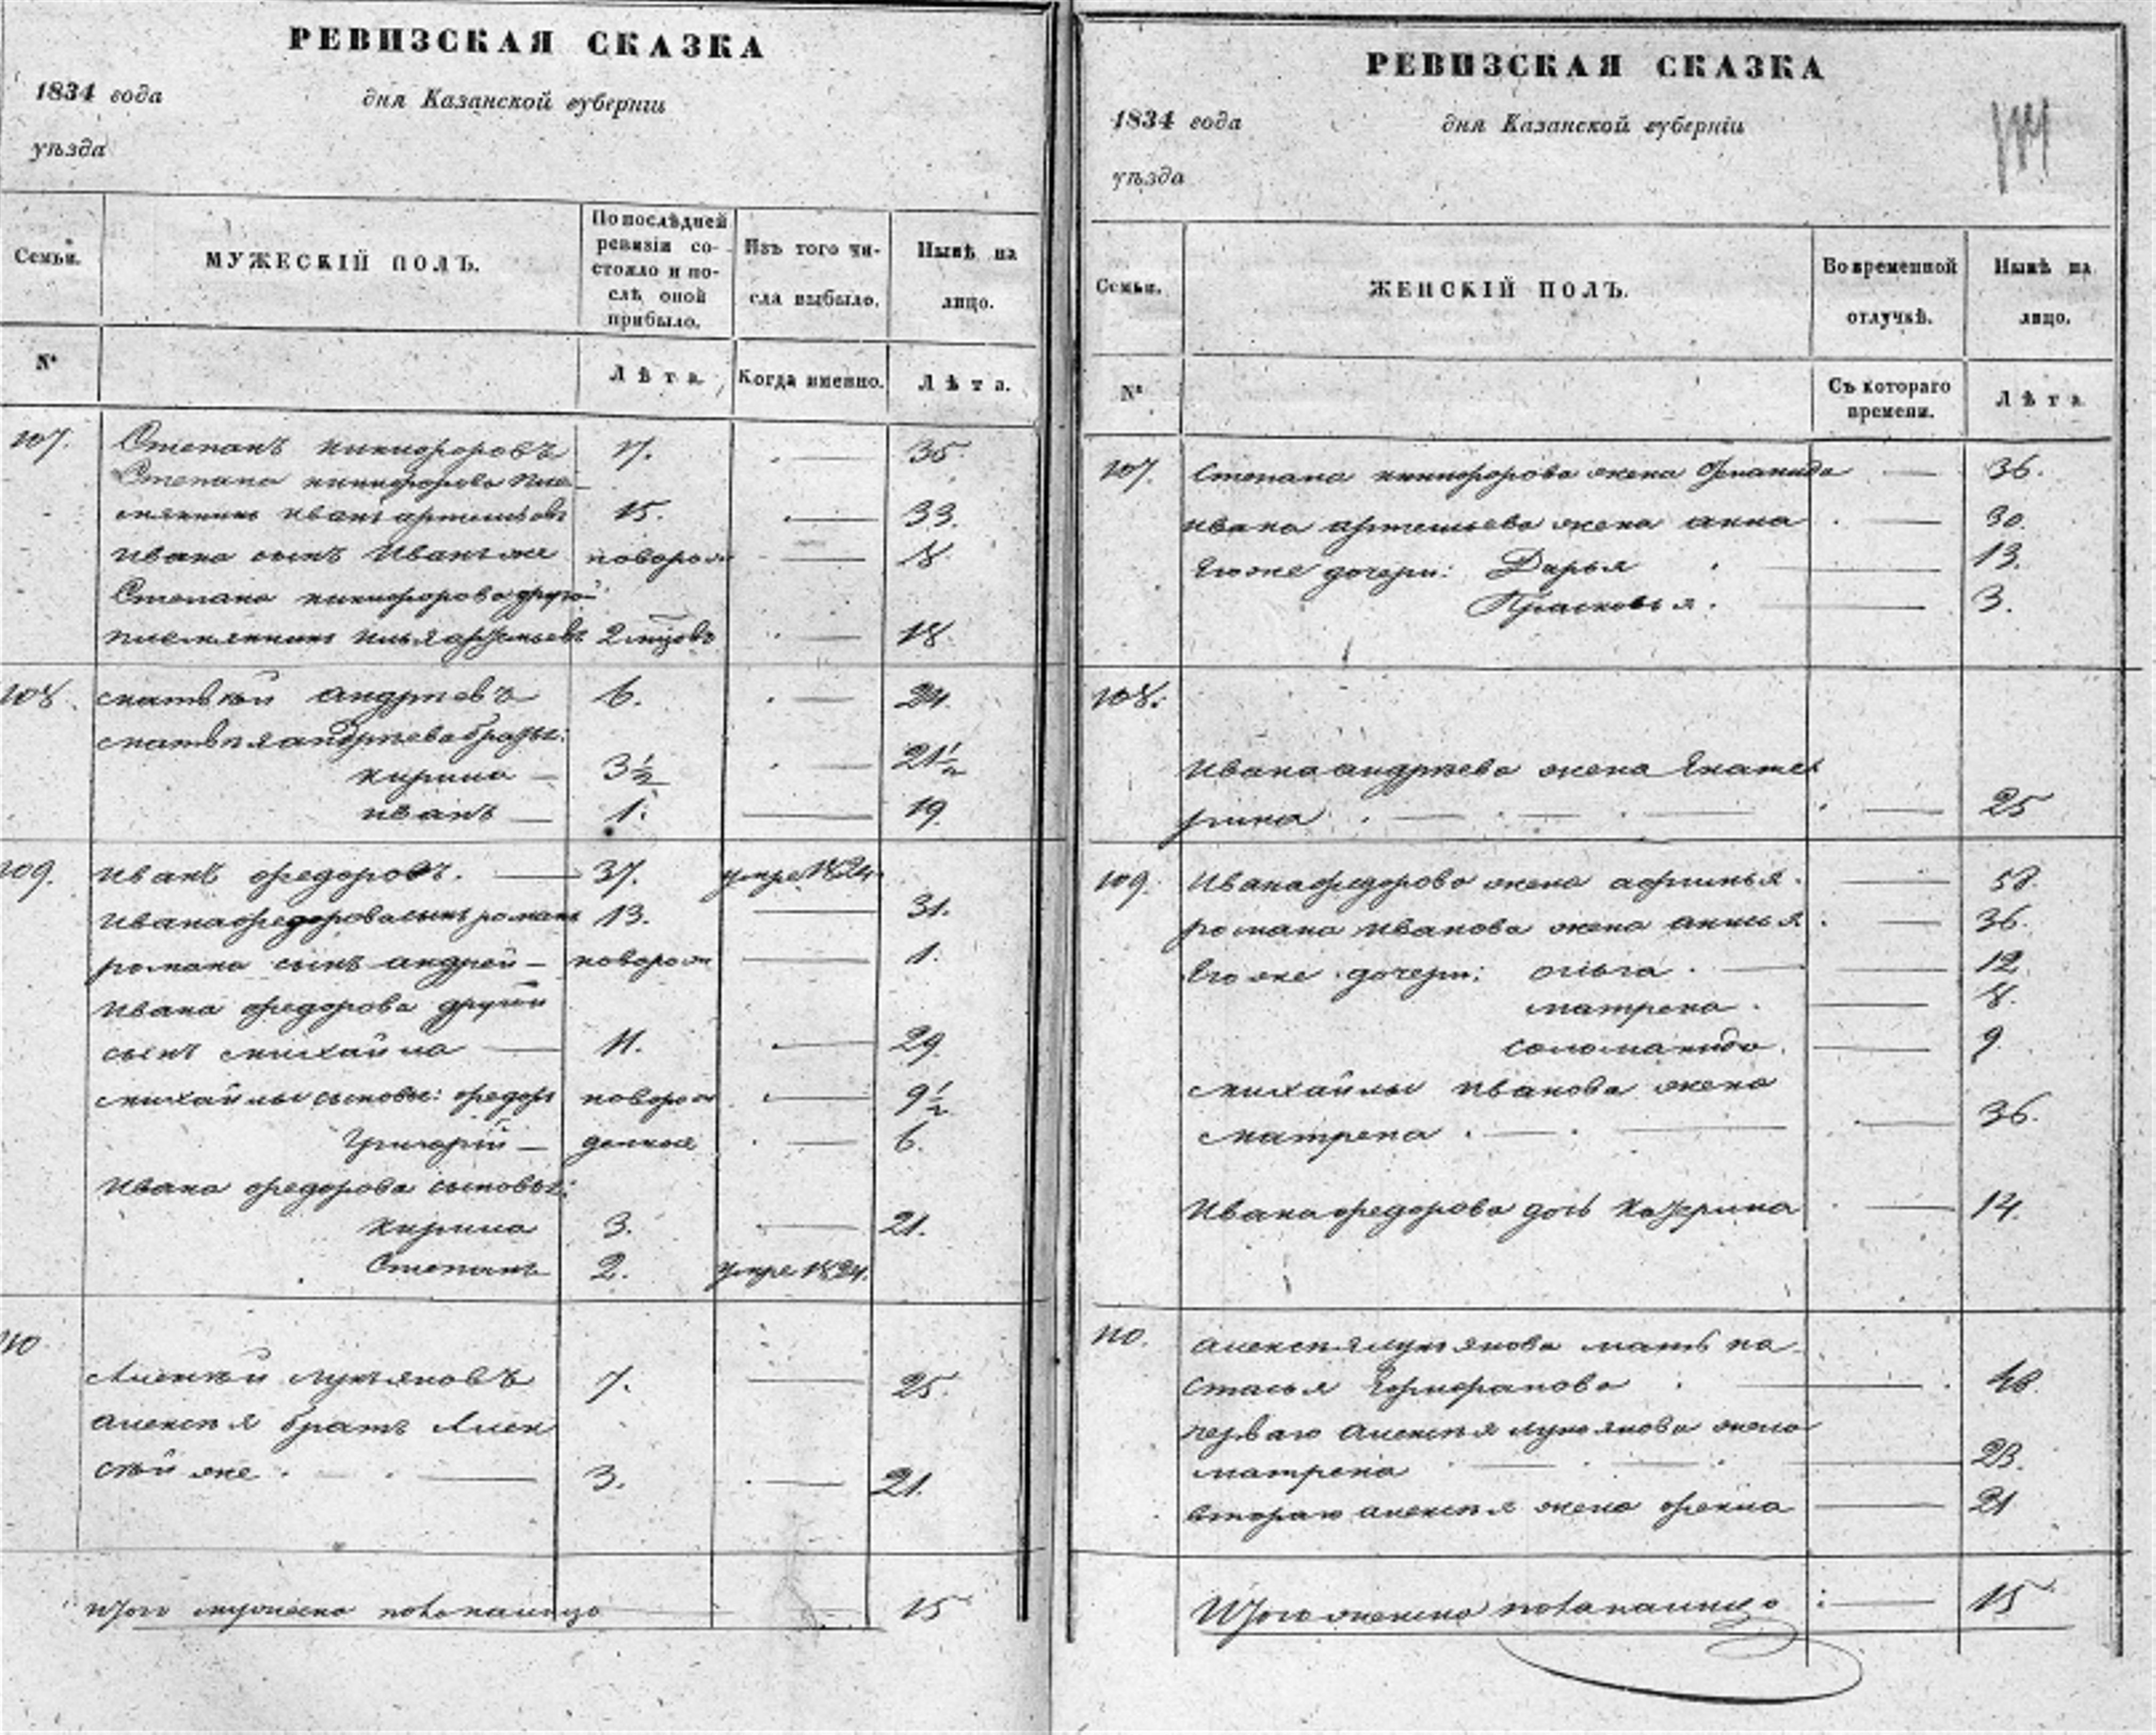 РЕВИЗСКАЯ СКАЗКА
1834 года дня Казанской губерніи
уѣзда
Семьи. МУЖЕСКІЙ ПОЛЪ. По послѣдней ревизіи состояло и послѣ оной прибыло. Изъ того числа выбыло. Нынѣ на лицо.
№ Лѣта. Когда именно. Лѣта.
107. Степанъ никифоровъ 17. — 35.
Степана никифорова пле-
мянникъ иванъ артемьевъ 15. — 33.
ивана сынъ Иванъ же новорож — 18.
Степана никифорова другой
племянникъ илья артемьевъ 2 мцовъ — 18.
108. матвѣй андреевъ 6. — 24.
матвѣя андреева братья:
кирила — 3½ — 21½
иванъ — 1. — 19.
109. иванъ федоровъ. — 37. умре 1824.
ивана федорова сынъ романъ 13. — 31.
романа сынъ андрей — новорож — 1.
ивана федорова другой
сынъ михайла — 11. — 29.
михайлы сыновья: федоръ новорож — 9½
Григорій — денные — 6.
ивана федорова сыновья:
кирила 3. — 21.
Степанъ 2. умре 1824.
110 Алексѣй лукьяновъ 7. — 25.
алексѣя братъ Алек
сѣй же . — 3. — 21.
итого мужеска пола налицо — 15
РЕВИЗСКАЯ СКАЗКА
1834 года дня Казанской губерніи
уѣзда
Семьи. ЖЕНСКІЙ ПОЛЪ. Во временной отлучкѣ. Нынѣ на лицо.
№ Съ котораго времени. Лѣта
107. степана никифорова жена — 36.
ивана артемьева жена анна — 30.
Его же дочери: Дарья — 13.
Прасковья. — 3.
108.
ивана андреева жена Екате
рина — 25
109. ивана федорова жена афимья. — 58.
романа иванова жена анисья — 36.
Его же дочери: ольга — 12.
матрена. — 8.
соломанида. — 9.
михайлы иванова жена
матрена — 36.
ивана федорова дочь катерина — 14.
110. алексѣя лукьянова мать на
стасья — 48.
перваго алексѣя лукьянова жена
матрена — 23.
втораго алексѣя жена фекла — 21
Итого женска пола налицо — 15